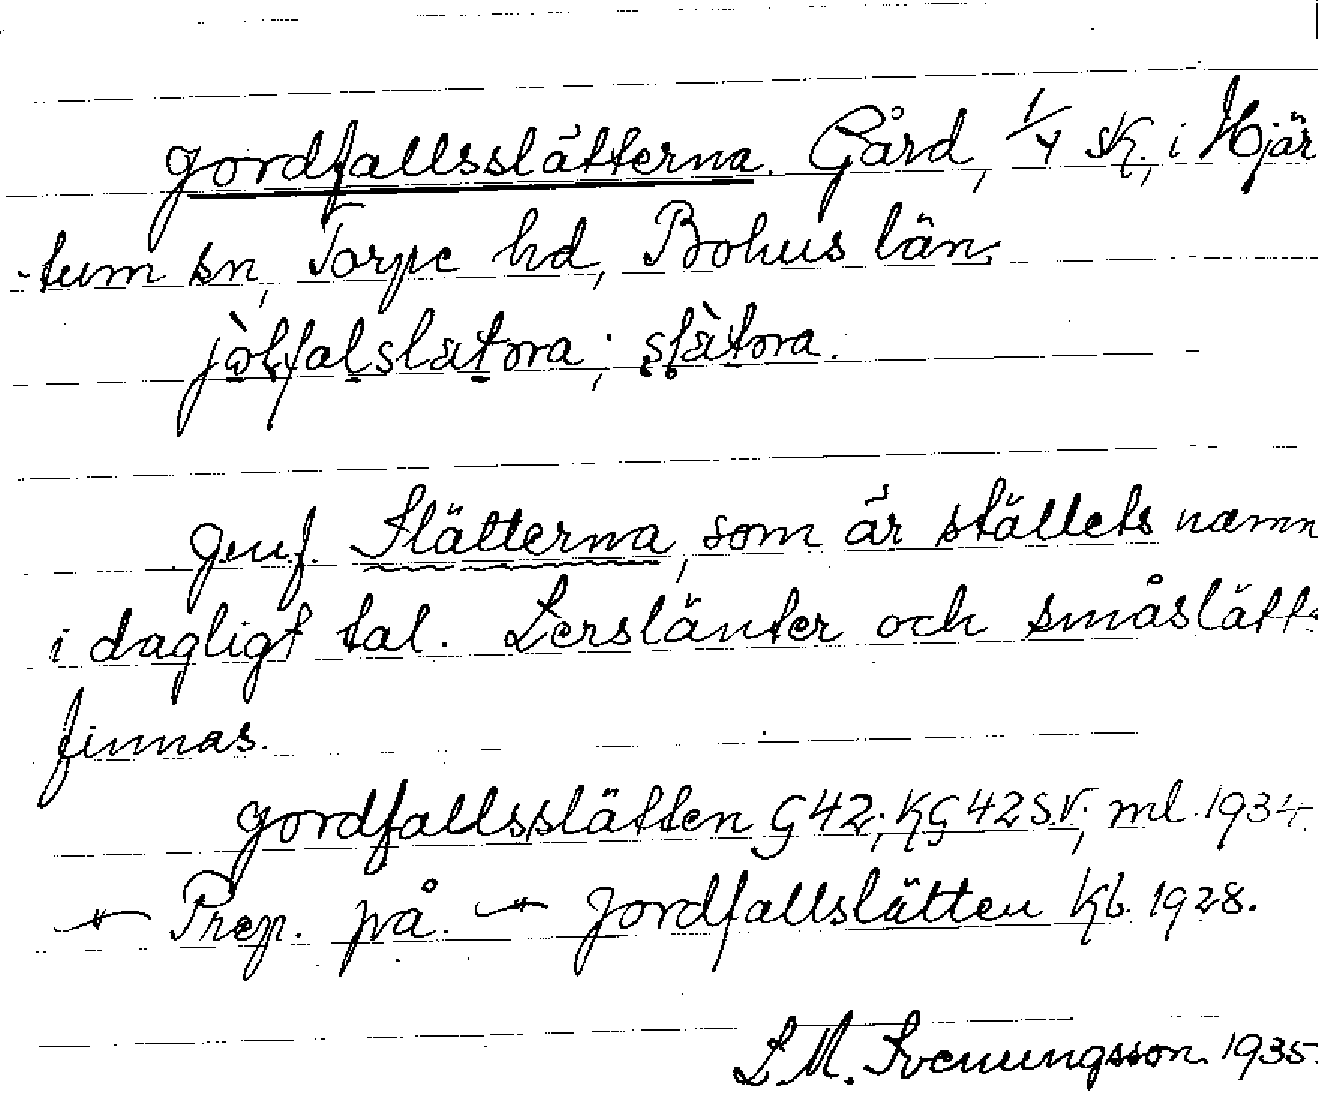 Jordfallsslätterna. Gård, 1/4 sk., i Hjär
-tum sn, Torpe hd, Bohus län.
jòḷfalslätora; slä̀tora.
Jmf. Slätterna, som är ställets namn
i dagligt tal. Lerslänter och småslätt
finnas.
Jordfallsslätten G 42; KG 42 SV; ml. 1934.
Prep. på. Jordfallslätten Kb. 1928.
L. M. Svenungsson 1935.